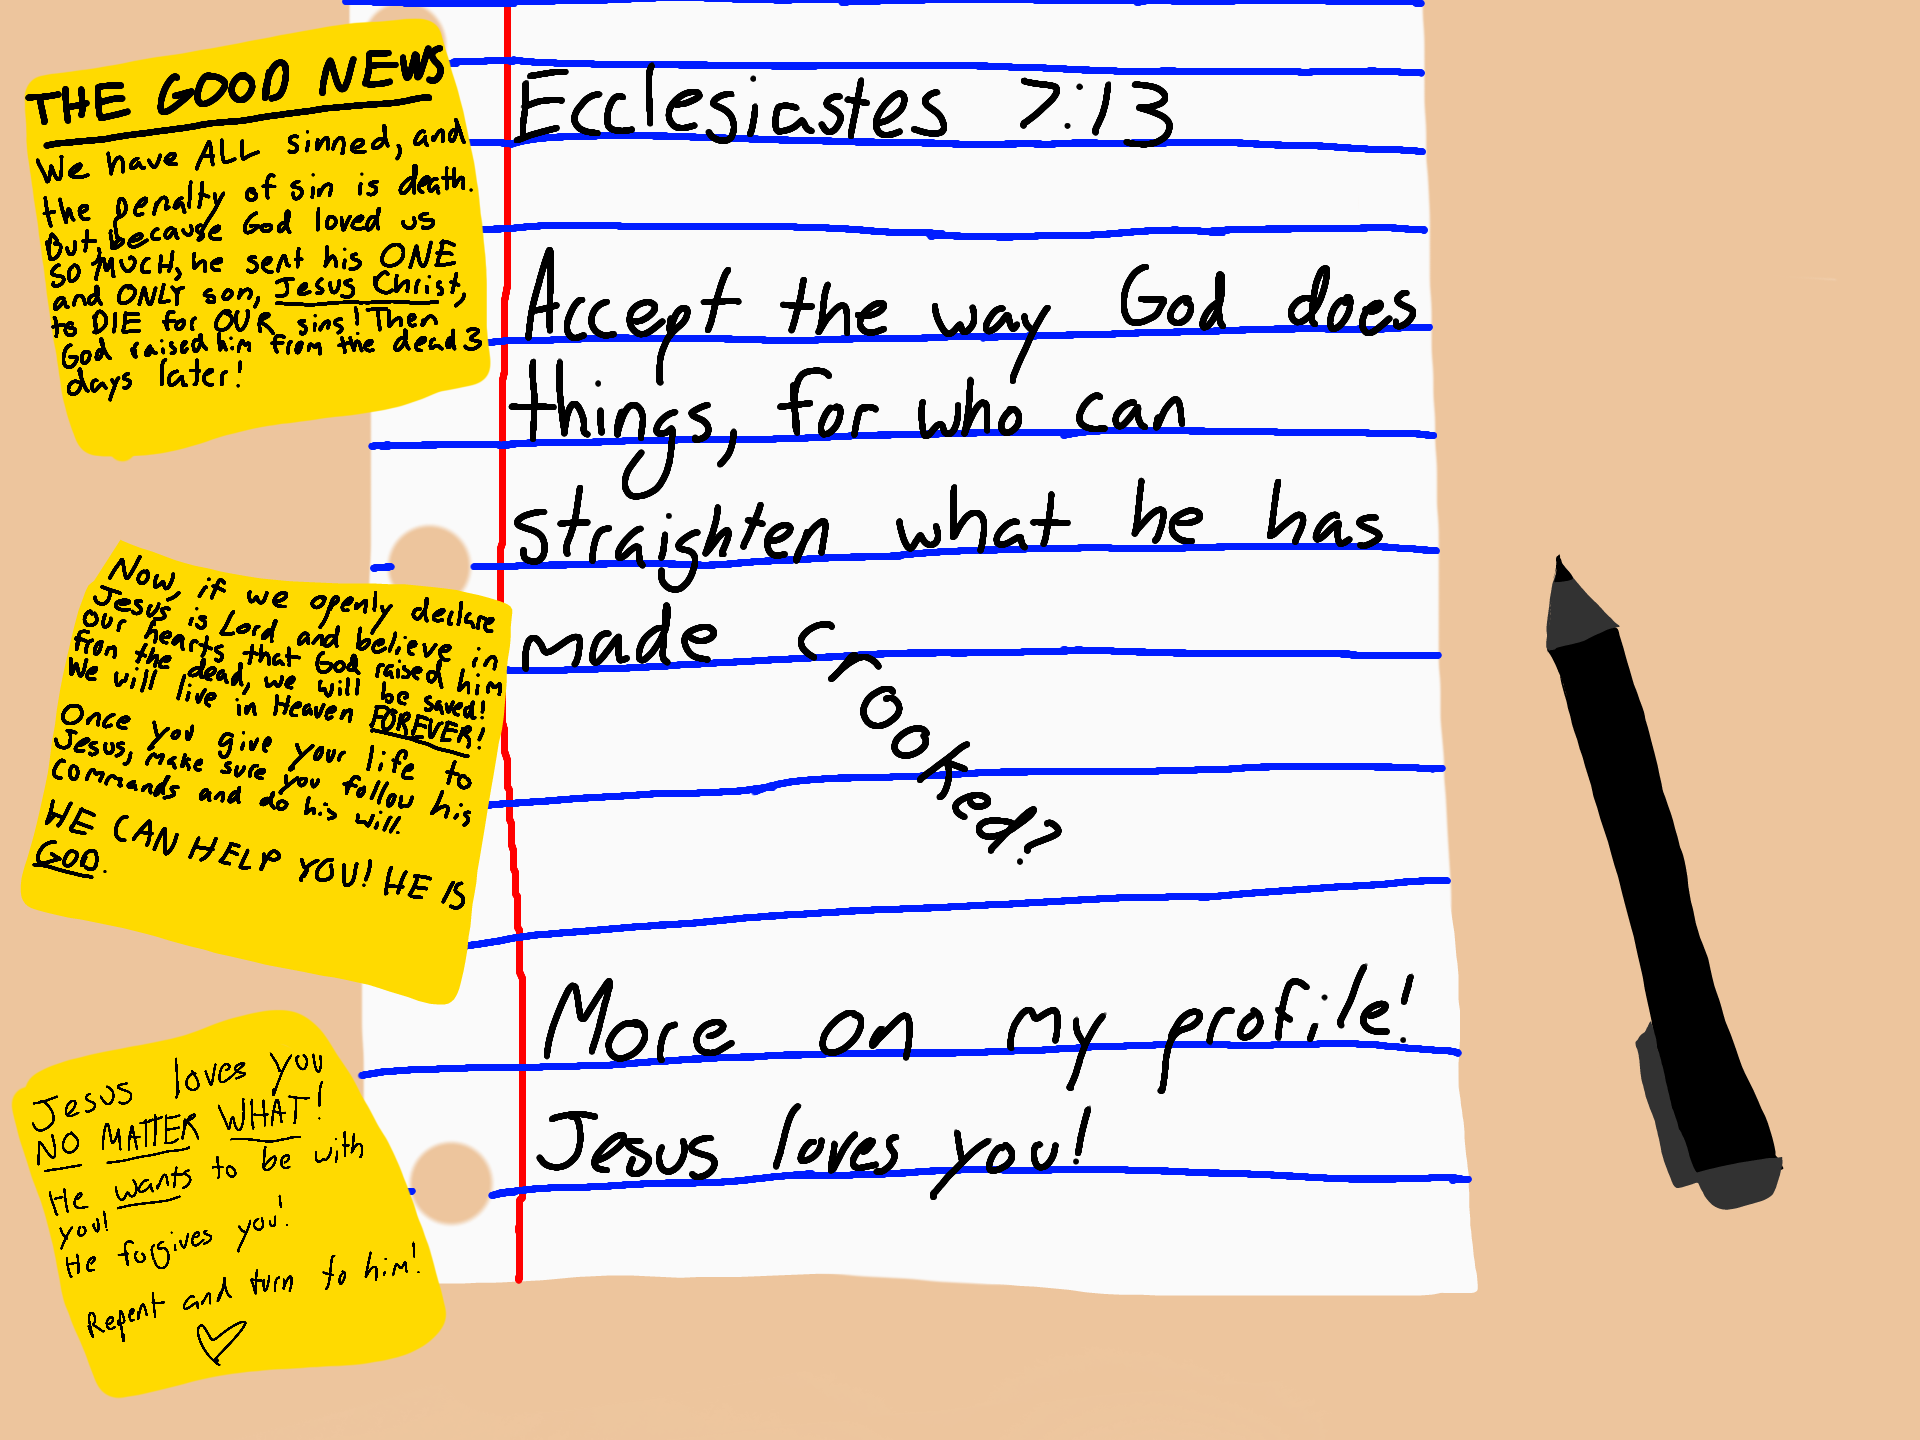 THE GOOD NEWS
We have ALL sinned, and
the penalty of sin is death.
But, because God loved us
SO MUCH, he sent his ONE
and ONLY son, Jesus Christ,
to DIE for OUR sins! Then
God raised him from the dead 3
days later!
Now, if we openly declare
Jesus is Lord and believe in
our hearts that God raised him
from the dead, we will be saved!
We will live in Heaven FOREVER!
Once you give your life to
Jesus, make sure you follow his
commands and do his will.
HE CAN HELP YOU! HE IS
GOD.
Jesus loves you
NO MATTER WHAT!
He wants to be with
you!
He forgives you!
Repent and turn to him!
Ecclesiastes 7:13
Accept the way God does
things, for who can
straighten what he has
made crooked?
More on my profile!
Jesus loves you!